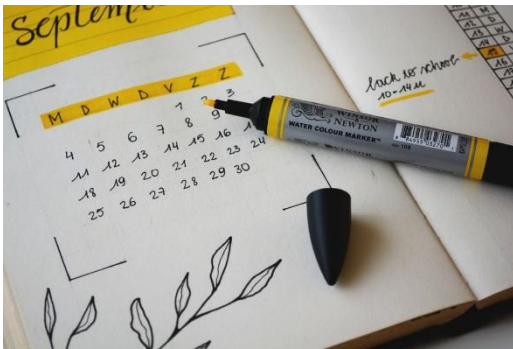 September
M D W D V Z Z
1 2 3
4 5 6 7 8 9
11 12 13 14 15 16
18 19 20 21 22 23 24
25 26 27 28 29 30
WINSOR
NEWTON
WATER COLOUR MARKER™
back to school
10-14u
11 M
12 D
13 W
14 D
15
16
17